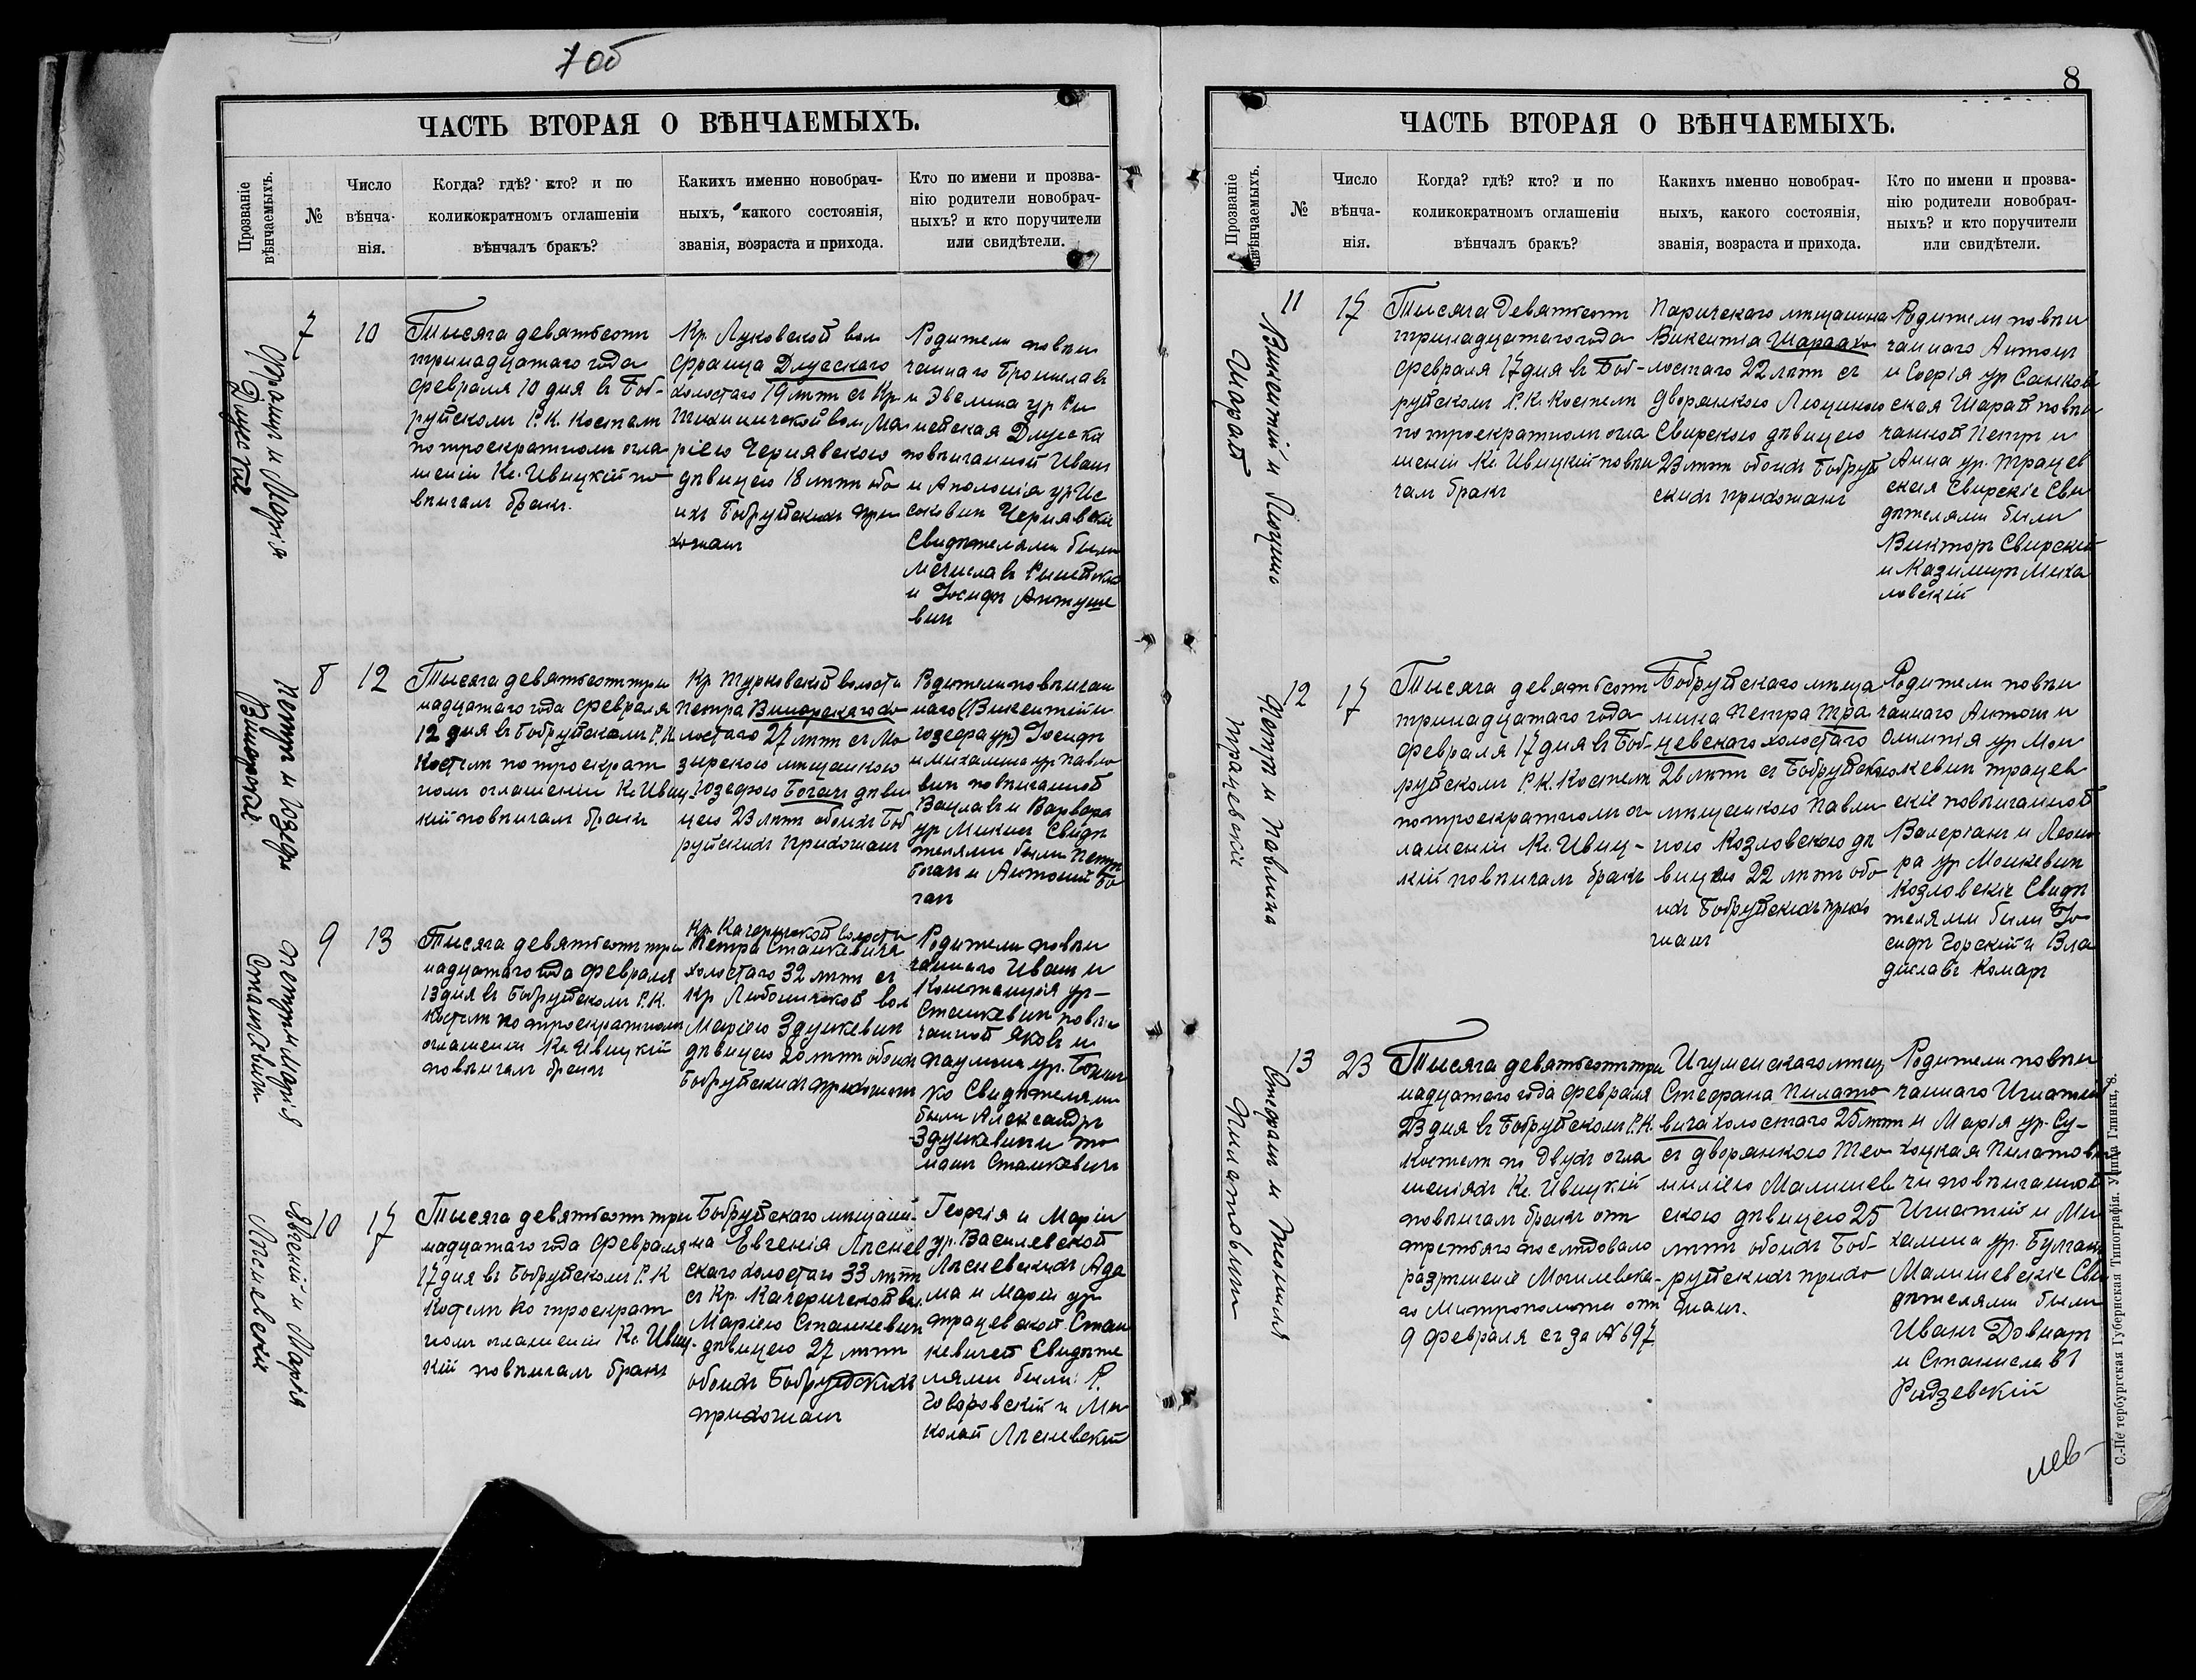 7 об
ЧАСТЬ ВТОРАЯ О ВѢНЧАЕМЫХЪ.
Прозваніе вѣнчаемыхъ.
№
Число вѣнча-нія.
Когда? гдѣ? кто? и по
коликократномъ оглашеніи
вѣнчалъ бракъ?
Какихъ именно новобрач-
ныхъ, какого состоянія,
званія, возраста и прихода.
Кто по имени и прозва-
нію родители новобрач-
ныхъ? и кто поручители
или свидѣтели.
Францъ и Марія
Длускіе
7
10
Тысяча девятьсотъ
тринадцатаго года
февраля 10 дня въ Боб-
руйскомъ Р. К. Костелѣ
по троекратномъ огла
шеніи Кс. Ивицкій по
вѣнчалъ бракъ.
Кр. Луковской вол
Франца Длускаго
холостаго 19 лѣтъ съ Кр
Тихиничской вол Ма
ріею Чернявскою
дѣвицею 18 лѣтъ обо
ихъ Бобруйскихъ при
хожанъ
Родители повѣн
чаннаго Брониславъ
и Эвелина ур
Длускіе
повѣнчанной Иванъ
и Аполонія ур
Чернявскіе
Свидѣтелями были
Мечиславъ
и Іосифъ Антуше
вичъ
Петръ и Юзефа
8
12
Тысяча девятьсотъ три
надцатаго года февраля
12 дня въ Бобруйскомъ Р.К
Костелѣ по троекрат
номъ оглашеніи Кс Ивиц
кій повѣнчалъ бракъ
Кр Турковской волости
Петра Винорскаго хо
лостаго 27 лѣтъ съ Мо
зырскою мѣщанкою
Юзефою Богачъ дѣви
цею 23 лѣтъ обоихъ Боб
руйскихъ прихожанъ
Родители повѣнчан
наго (Викентій и
Юзефа ур) Іосифъ
и Михалина ур Павло
вичъ повѣнчанной
Вацлавъ и Варвара
ур Свидѣ
телями были Петръ
Богачъ и Антоній Бо
гачъ
Петръ и Марія
Станкевичи
9
13
Тысяча девятьсотъ три
надцатаго года февраля
13 дня въ Бобруйскомъ Р.К.
Костелѣ по троекратномъ
оглашеніи Кс. Ивицкій
повѣнчалъ бракъ
Кр. Качеричской волости
Петра Станкевича
холостаго 32 лѣтъ съ
Кр Любоничской вол
Маріею Здушкевичъ
дѣвицею 20 лѣтъ обоихъ
Бобруйскихъ прихожанъ
Родители повѣн
чаннаго Иванъ и
Констанція ур-
Станкевичъ повѣн
чанной Яковъ и
Паулина ур.
Свидѣтелями
были Александръ
Здушкевичъ и То
машъ Станкевичъ
Евгеній и Марія
Лѣсневскіе
10
17
Тысяча девятьсотъ три
надцатаго года февраля
17 дня въ Бобруйскомъ Р. К
Костелѣ по троекрат
номъ оглашеніи Кс. Ивиц-
кій повѣнчалъ бракъ
Бобруйскаго мѣщани-
на Евгенія Лѣснев
скаго холостаго 33 лѣтъ
съ Кр. Качеричской вл.
Маріею Станкевичъ
дѣвицею 27 лѣтъ
обоихъ Бобруйскихъ
прихожанъ
Георгія и Маріи
ур. Василевской
Лѣсневскихъ Ада
ма и Маріи ур
Трацевской Стан
кевичей Свидѣте
лями были: Р.
Говоровскій и Ми
колай Лѣсневскій
8
ЧАСТЬ ВТОРАЯ О ВѢНЧАЕМЫХЪ.
Прозваніе вѣнчаемыхъ.
№
Число вѣнча-нія.
Когда? гдѣ? кто? и по
коликократномъ оглашеніи
вѣнчалъ бракъ?
Какихъ именно новобрач-
ныхъ, какого состоянія,
званія, возраста и прихода.
Кто по имени и прозва-
нію родители новобрач-
ныхъ? и кто поручители
или свидѣтели.
Викентій и Люцина
Шарай
11
17
Тысяча Девятьсотъ
тринадцатаго года
февраля 17 дня въ Боб-
руйскомъ Р. К. Костелѣ
по троекратномъ огла
шеніи Кс. Ивицкій повѣн
чалъ бракъ
Паричскаго мѣщанина
Викентія Шарая хо
лостаго 22 лѣтъ съ
дворянкою Люциною
Свирскою дѣвицею
23 лѣтъ обоихъ Бобруй
скихъ прихожанъ
Родители повѣн
чаннаго Антонъ
и Софія ур Санков
ская Шарай повѣн
чанной Петръ и
Анна ур. Трацев
ская Свирскіе Сви
дѣтелями были
Викторъ Свирскій
и Казимиръ Миха
ловскій
Петръ и Павлина
Трацевскіе
12
17
Тысяча девятьсотъ
тринадцатаго года
февраля 17 дня въ Боб-
руйскомъ Р. К. Костелѣ
по троекратномъ ог
лашеніи Кс. Ивиц-
кій повѣнчалъ бракъ
Бобруйскаго мѣща
нина Петра Тра
цевскаго холостаго
26 лѣтъ съ Бобруйскою
мѣщанкою Павли
ною Козловскою дѣ
вицею 22 лѣтъ обо
ихъ Бобруйскихъ прихо
жанъ
Родители повѣн
чаннаго Антонъ и
Олимпія ур Мон
кевичъ Трацев
скіе повѣнчанной
Валеріанъ и Леоно
ра ур Монкевичъ
Козловскіе Свидѣ
телями были Іо
сифъ Горскій и Вла
диславъ Комаръ
Стефанъ и Теофилія
Пилатовичи
13
23
Тысяча девятьсотъ три
надцатаго года февраля
23 дня въ Бобруйскомъ Р.К.
Костелѣ по двухъ огла
шеніяхъ Кс. Ивицкій
повѣнчалъ бракъ отъ
третьяго послѣдовало
разрѣшеніе Могилевска-
го Митрополита отъ
9 февраля с. г. за № 697.
Игуменскаго мѣщ
Стефана Пилато
вича холостаго 25 лѣтъ
съ дворянкою Тео
филіею Малишев
скою дѣвицею 25
лѣтъ обоихъ Боб-
руйскихъ прихо
жанъ.
Родители повѣн
чаннаго Игнатій
и Марія ур. Су-
хоцкая Пилатови
чи повѣнчанной
Игнатій и Ми
халина ур. Булгакъ
Малишевскіе Сви
дѣтелями были
Иванъ Довнаръ
и Станиславъ
Радзевскій
С.-Петербургская Губернская Типографія. Улица Глинки, 8.